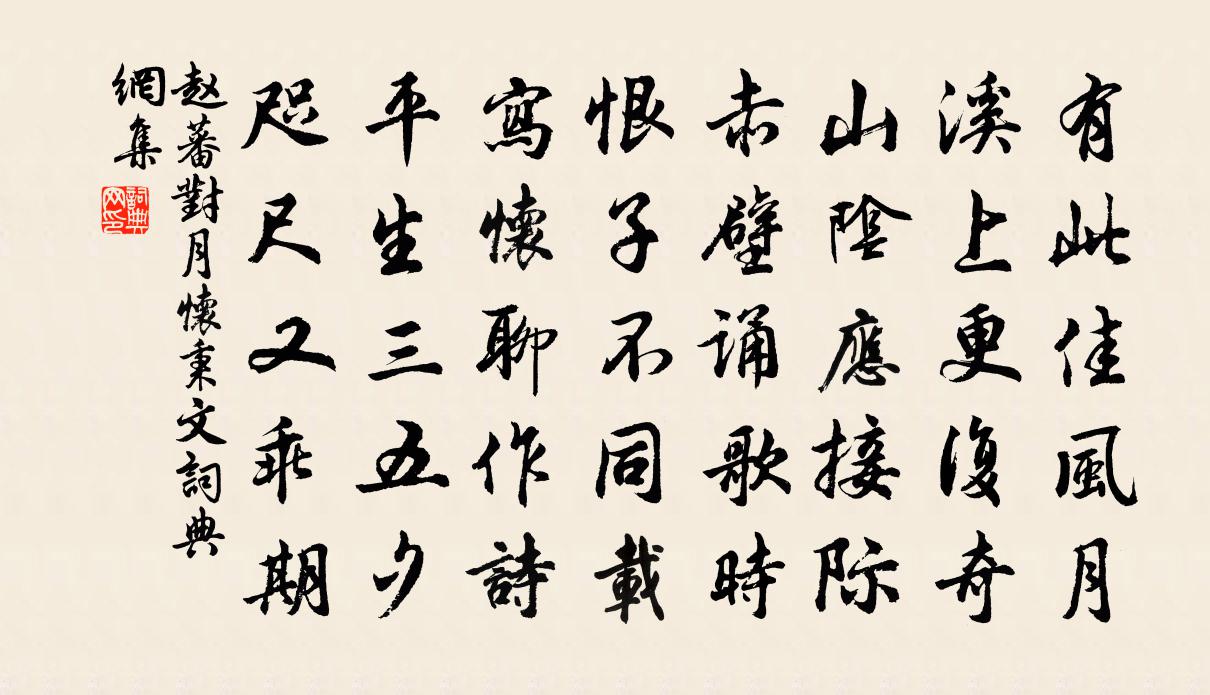 有此佳風月
溪上更復奇
山陰應接际
赤壁诵歌時
恨子不同載
寫懷聊作詩
平生三五夕
咫尺又乖期
赵蕃對月懷秉文詞典
網集
詞典网印